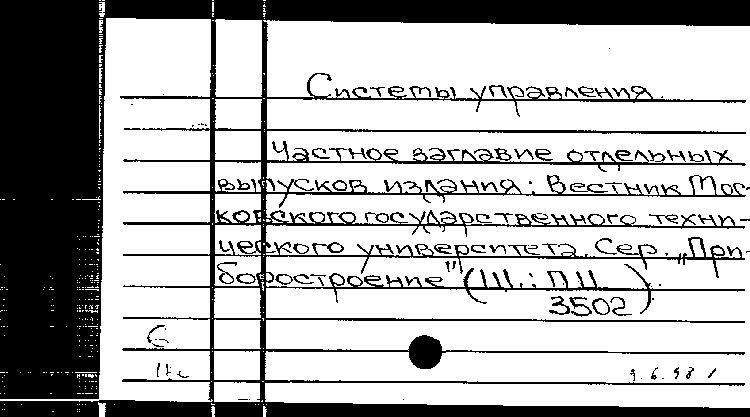 Системы управления
Частное заглавие отдельных
выпусков издания: Вестник Мос-
ковского государственного техни-
ческого университета. Сер. „При-
боростроение" (Ш.: П II
3502).
С
9.6.98